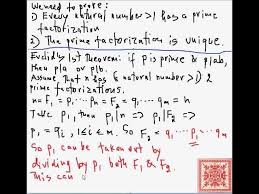 We need to prove:
1) Every natural number >1 has a prime
factorization
2) The prime factorization is unique.
Euclid's 1st Theorem: if p is prime & p|ab,
then p|a or p|b.
Assume that n has & natural number >1) 2
prime factorizations.
n = F₁ = p₁ ... pₙ = F₂ = q₁ ... qₘ = n
Take p₁, then p₁|n => p₁|F₂ =>
p₁ = qᵢ, 1≤i≤m. So F₂ = q₁ ... p₁ ... qₘ
So p₁ can be taken out by
dividing by p₁ both F₁ & F₂
This can